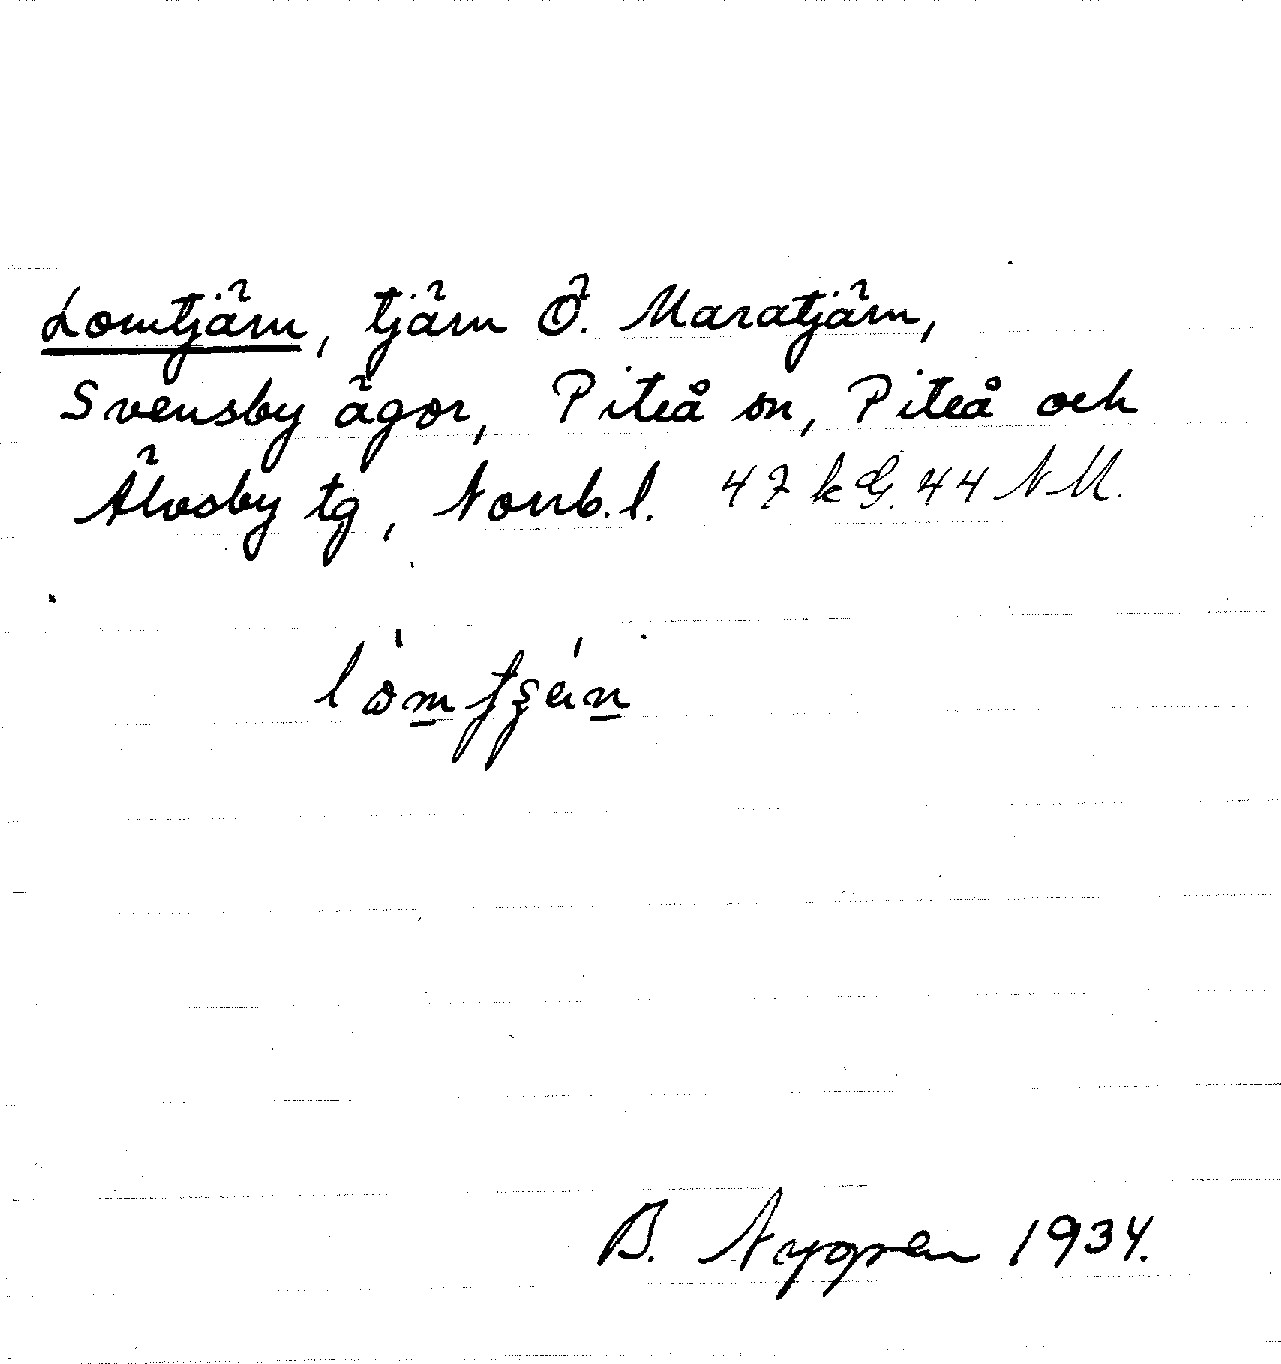 Lomtjärn, tjärn Ö. Maratjärn,
Svensby ägor, Piteå sn, Piteå och
Älvsby tg, Norrb. l. 47 k G. 44 N M.
B. Nygren 1934.